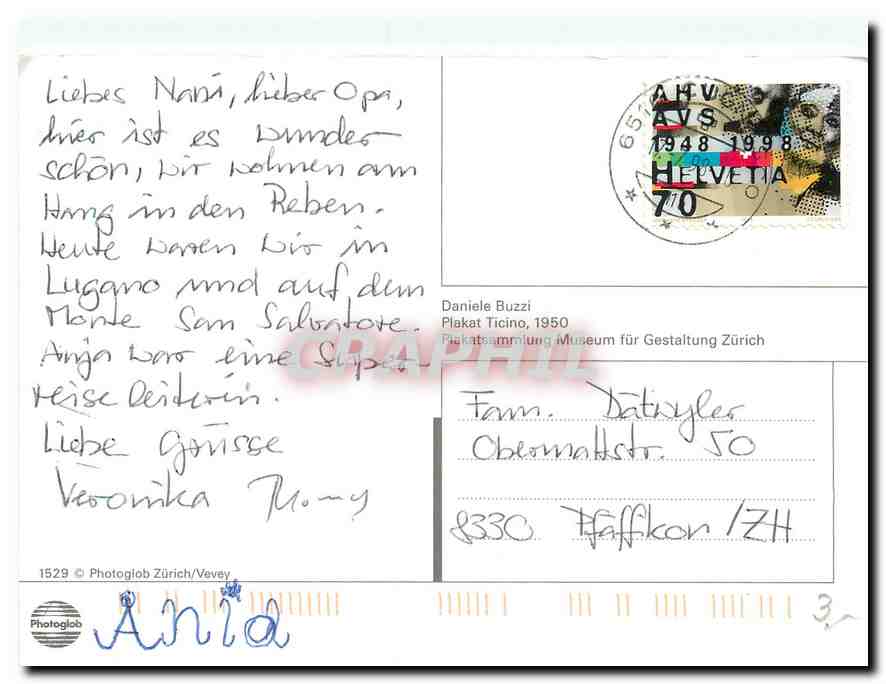 Liebes Nani, lieber Opa,
hier ist es wunder-
schön, wir wohnen am
Hang in den Reben.
Heute waren wir in
Lugano und auf dem
Monte San Salvatore.
Anja war eine Super-
reiseleiterin.
Liebe Grüsse
Veronika
1529 © Photoglob Zürich/Vevey
Photoglob
Anja
AHV
AVS
1948 1998
HELVETIA
70
Daniele Buzzi
Plakat Ticino, 1950
Plakatsammlung Museum für Gestaltung Zürich
CRAPHIL
Fam. Dätwyler
Obermattstr. 50
8330 Pfäffikon/ZH
3,-